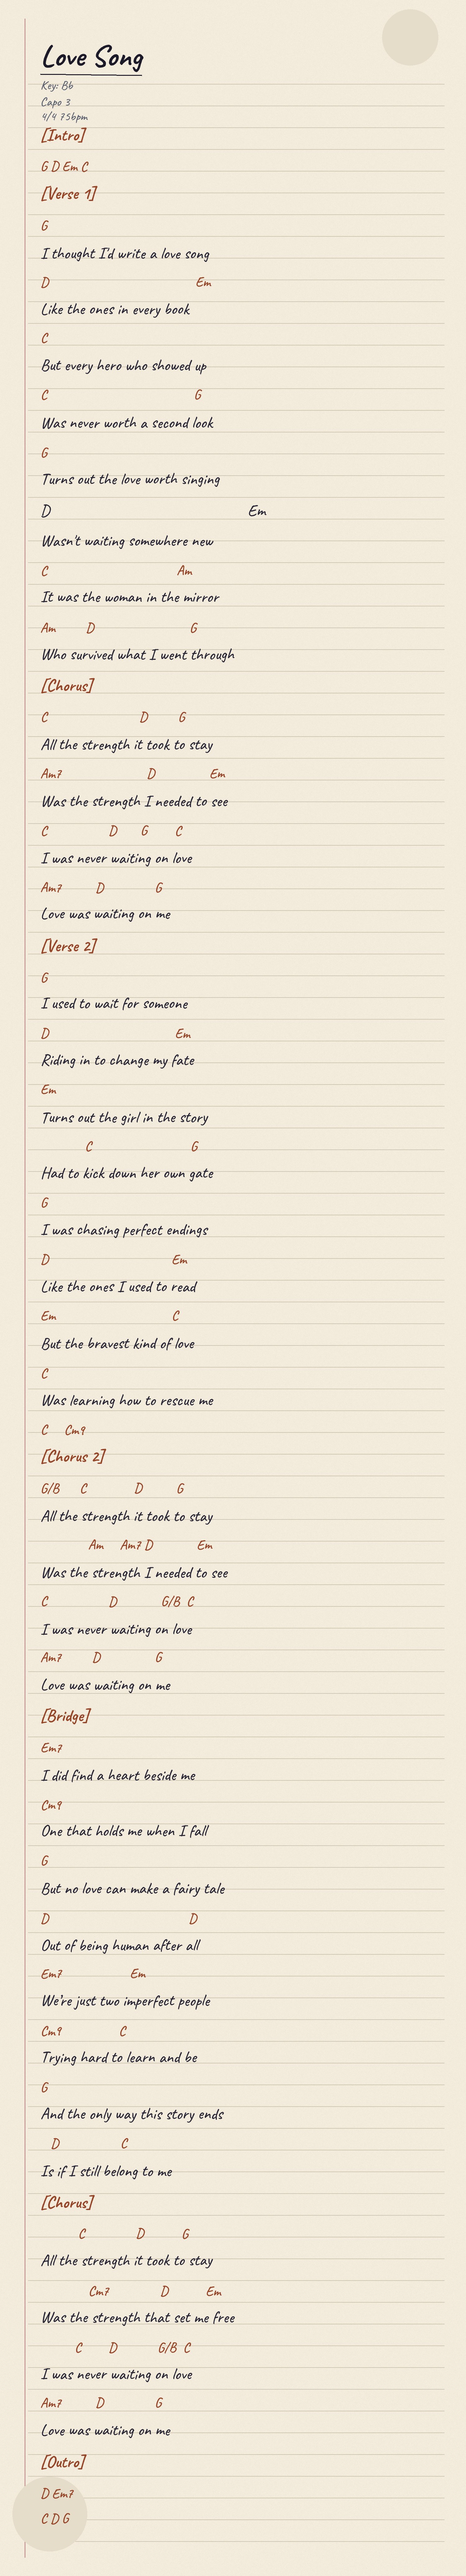 Love Song
Key: Bb
Capo 3
4/4 75bpm
[Intro]
G D Em C
[Verse 1]
G
I thought I'd write a love song
D Em
Like the ones in every book
C
But every hero who showed up
C G
Was never worth a second look
G
Turns out the love worth singing
D Em
Wasn't waiting somewhere new
C Am
It was the woman in the mirror
Am D G
Who survived what I went through
[Chorus]
C D G
All the strength it took to stay
Am7 D Em
Was the strength I needed to see
C D G C
I was never waiting on love
Am7 D G
Love was waiting on me
[Verse 2]
G
I used to wait for someone
D Em
Riding in to change my fate
Em
Turns out the girl in the story
C G
Had to kick down her own gate
G
I was chasing perfect endings
D Em
Like the ones I used to read
Em C
But the bravest kind of love
C
Was learning how to rescue me
C Cm9
[Chorus 2]
G/B C D G
All the strength it took to stay
Am Am7 D Em
Was the strength I needed to see
C D G/B C
I was never waiting on love
Am7 D G
Love was waiting on me
[Bridge]
Em7
I did find a heart beside me
Cm9
One that holds me when I fall
G
But no love can make a fairy tale
D D
Out of being human after all
Em7 Em
We're just two imperfect people
Cm9 C
Trying hard to learn and be
G
And the only way this story ends
D C
Is if I still belong to me
[Chorus]
C D G
All the strength it took to stay
Cm7 D Em
Was the strength that set me free
C D G/B C
I was never waiting on love
Am7 D G
Love was waiting on me
[Outro]
D Em7
C D G